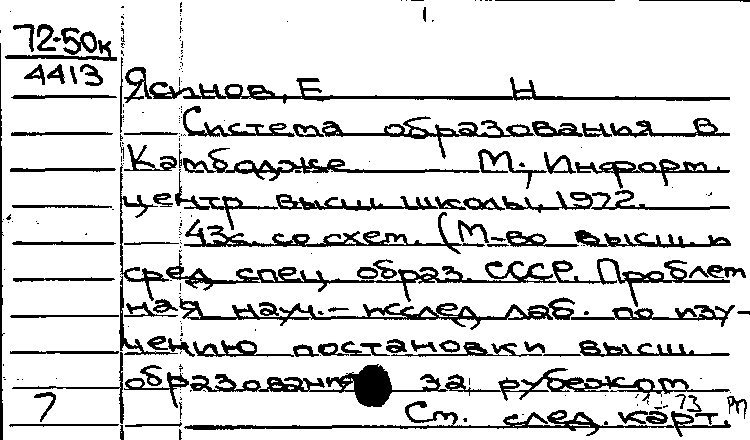 1.
72-50к
4413
Ясинов, Е Н
Система образования в
Камбодже М., Информ.
центр высш. школы, 1972.
43с. со схем. (М-во высш. и
сред. спец. образ. СССР. Проблем
ная науч.-исслед. лаб. по изу-
чению постановки высш.
образования за рубежом
7
См. след. карт.